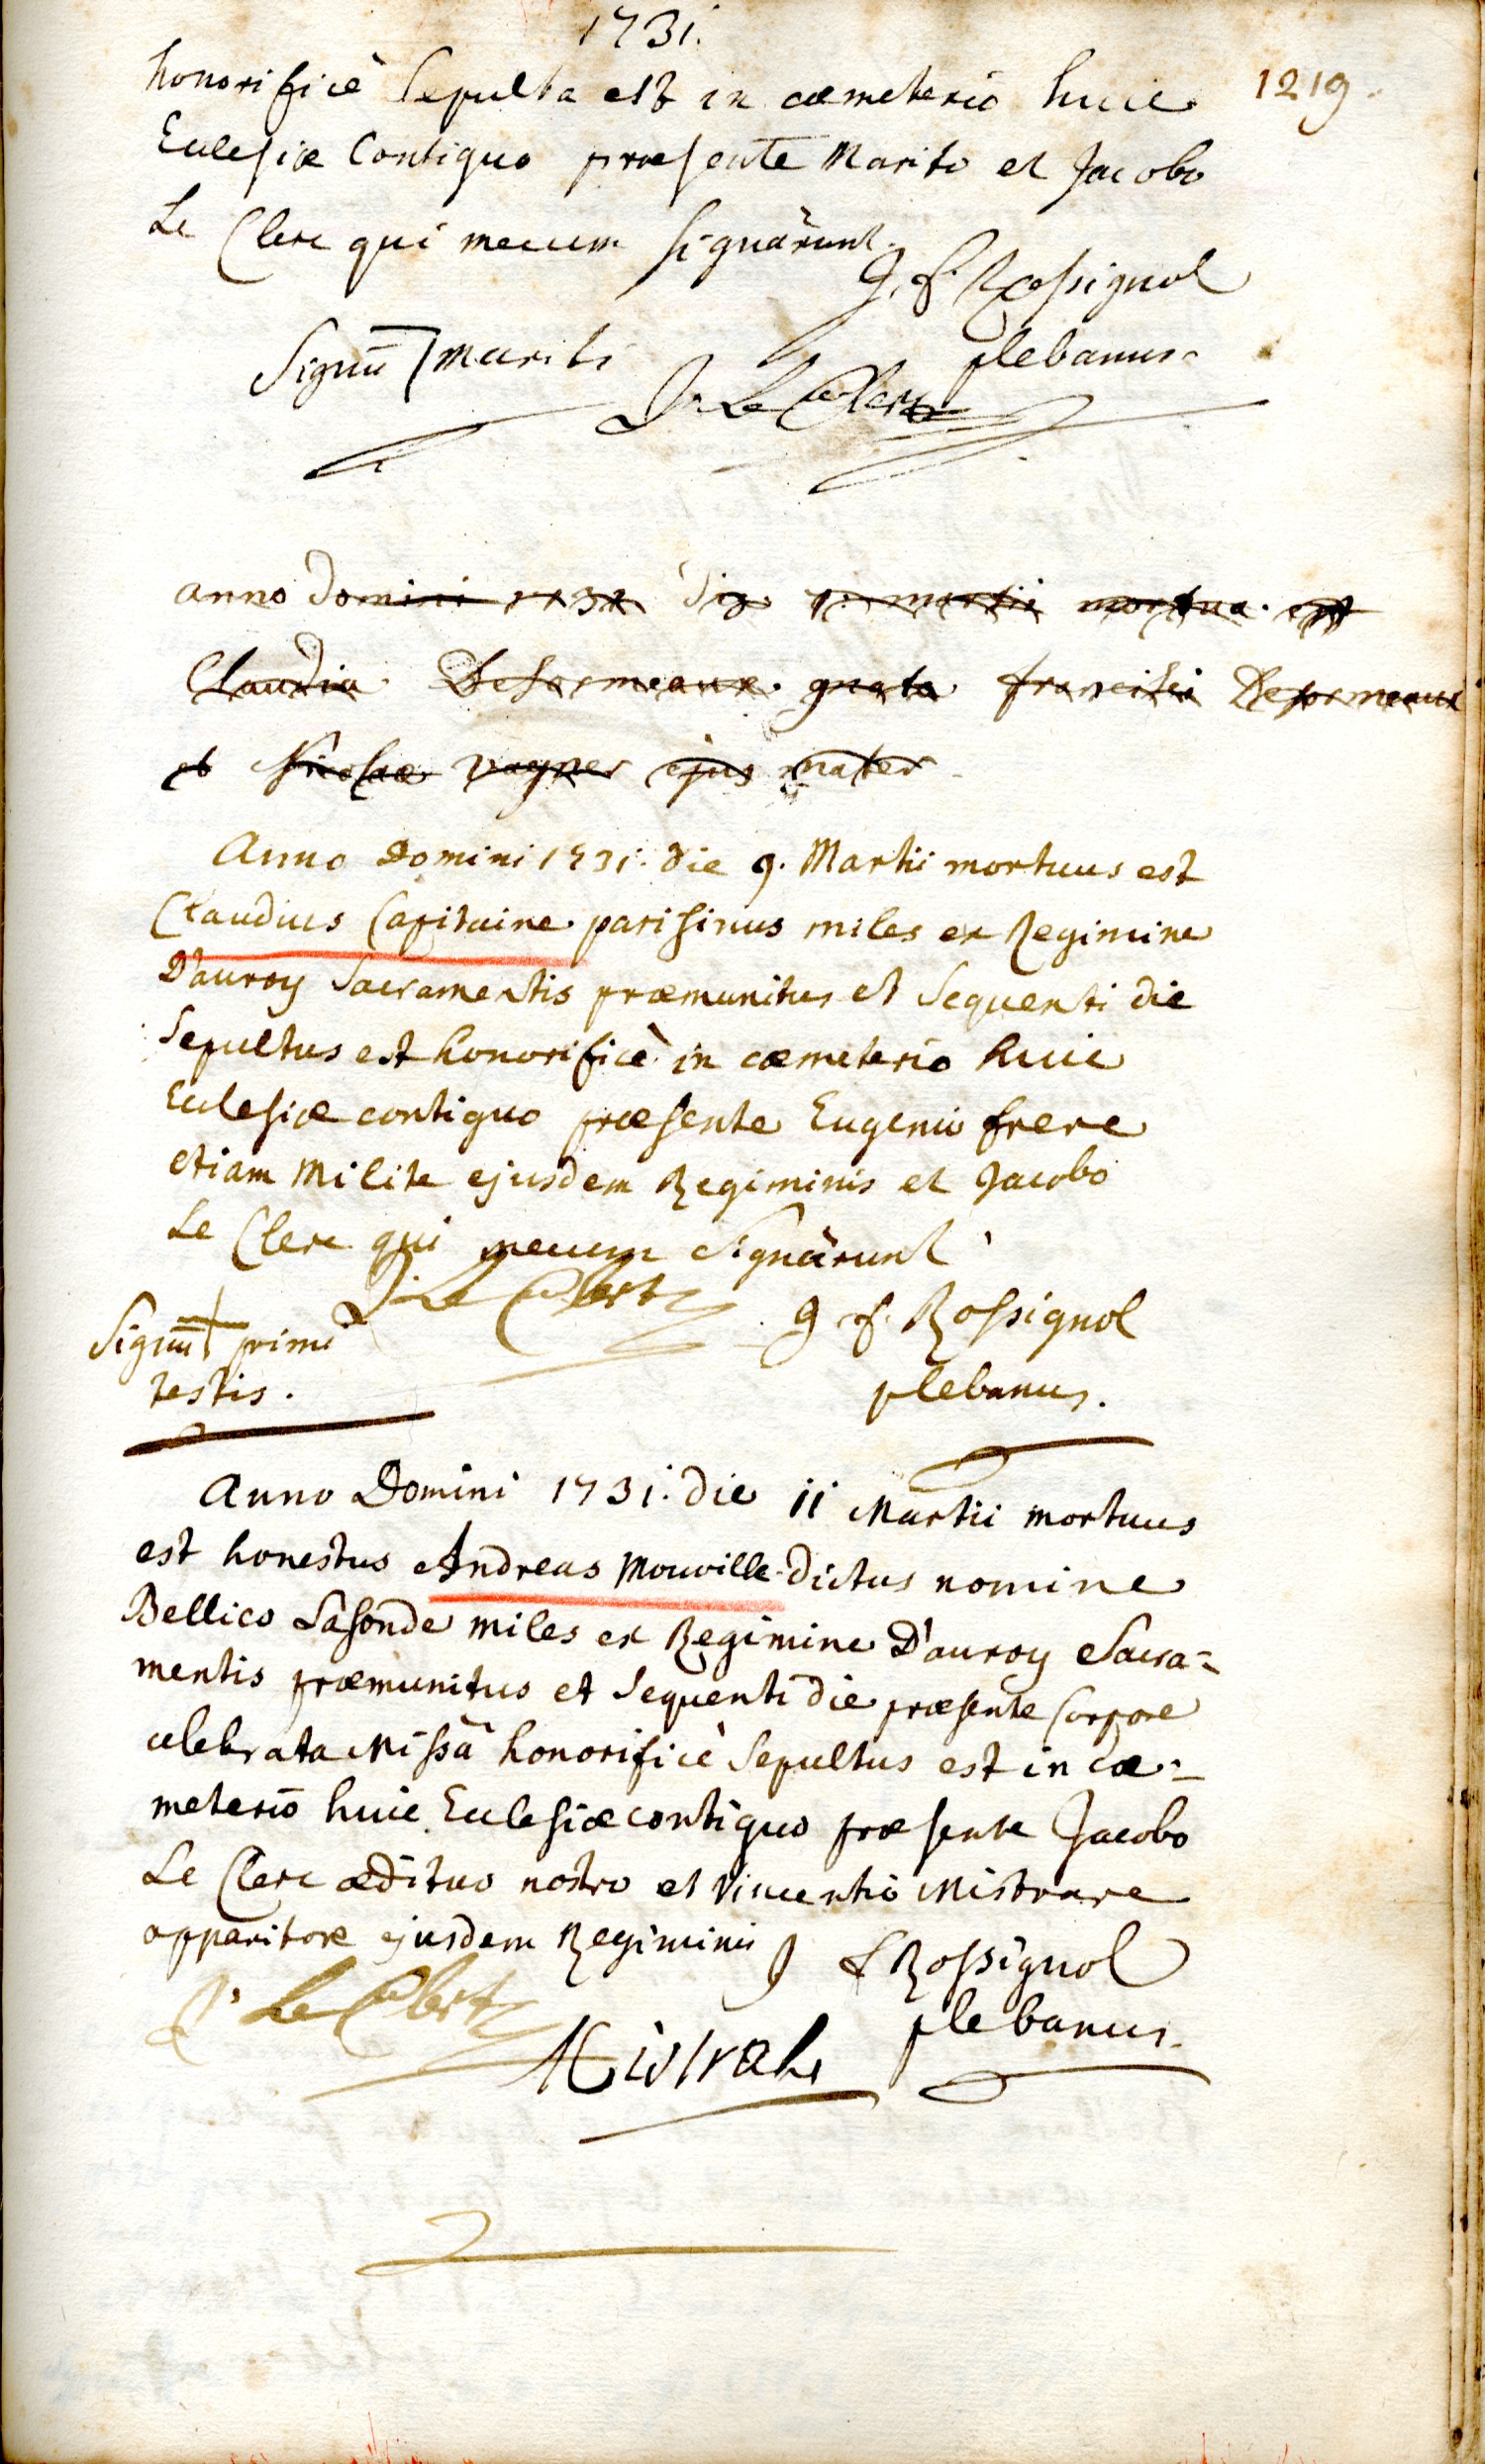 1731.
1219.
honorificè Sepulta est in cœmeterio huic
Ecclesiæ Contiguo præsente Marito et Jacobo
Le Clerc qui mecum signârunt.
J. f. Rossignol
plebanus.
Signū mariti
J. Le Clerc
anno domini 1731 die martii mortua est
Claudia Desormeaux gnata francisci Desormeaux
et Nicolae vagner ejus mater
Anno Domini 1731. die 9. Martii mortuus est
Claudius Capitaine parisinus miles ex Regimine
D'auroy Sacramentis præmunitus et Sequenti die
Sepultus est honorificè in cœmeterio huic
Ecclesiæ contiguo præsente Eugenio frere
etiam Milite ejusdem Regiminis et Jacobo
Le Clerc qui mecum Signârunt
J. Le Clerc
J f. Rossignol
Signū primi
testis.
plebanus.
Anno Domini 1731. die 11 Martii mortuus
est honestus Andreas Mouville dictus nomine
Bellico Lasonde miles ex Regimine D'auroy Sacra=
mentis præmunitus et Sequenti die præsente Corpore
celebrata Missâ honorificè Sepultus est in cœ=
meterio huic Ecclesiæ contiguo præsente Jacobo
Le Clerc ædituo nostro et Vincentio Mistrare
apparitore ejusdem Regiminis J f Rossignol
J. Le Clerc
plebanus.